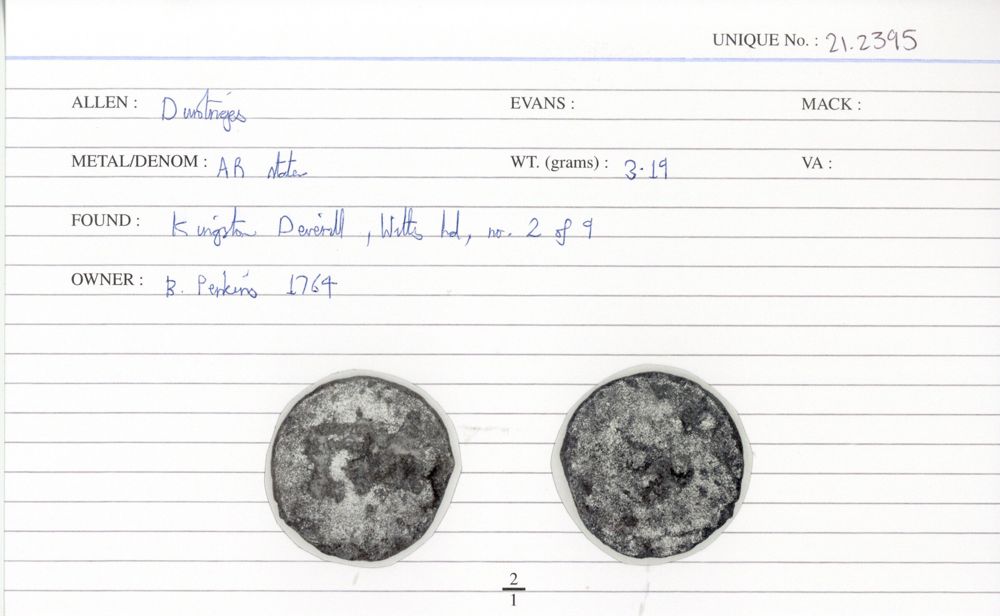 UNIQUE No. : 21.2395
ALLEN : Durotriges EVANS : MACK :
METAL/DENOM : AR stater WT. (grams) : 3.19 VA :
FOUND : Kingston Deverill, Wilts hd, no. 2 of 9
OWNER : B. Perkins 1764
2
1